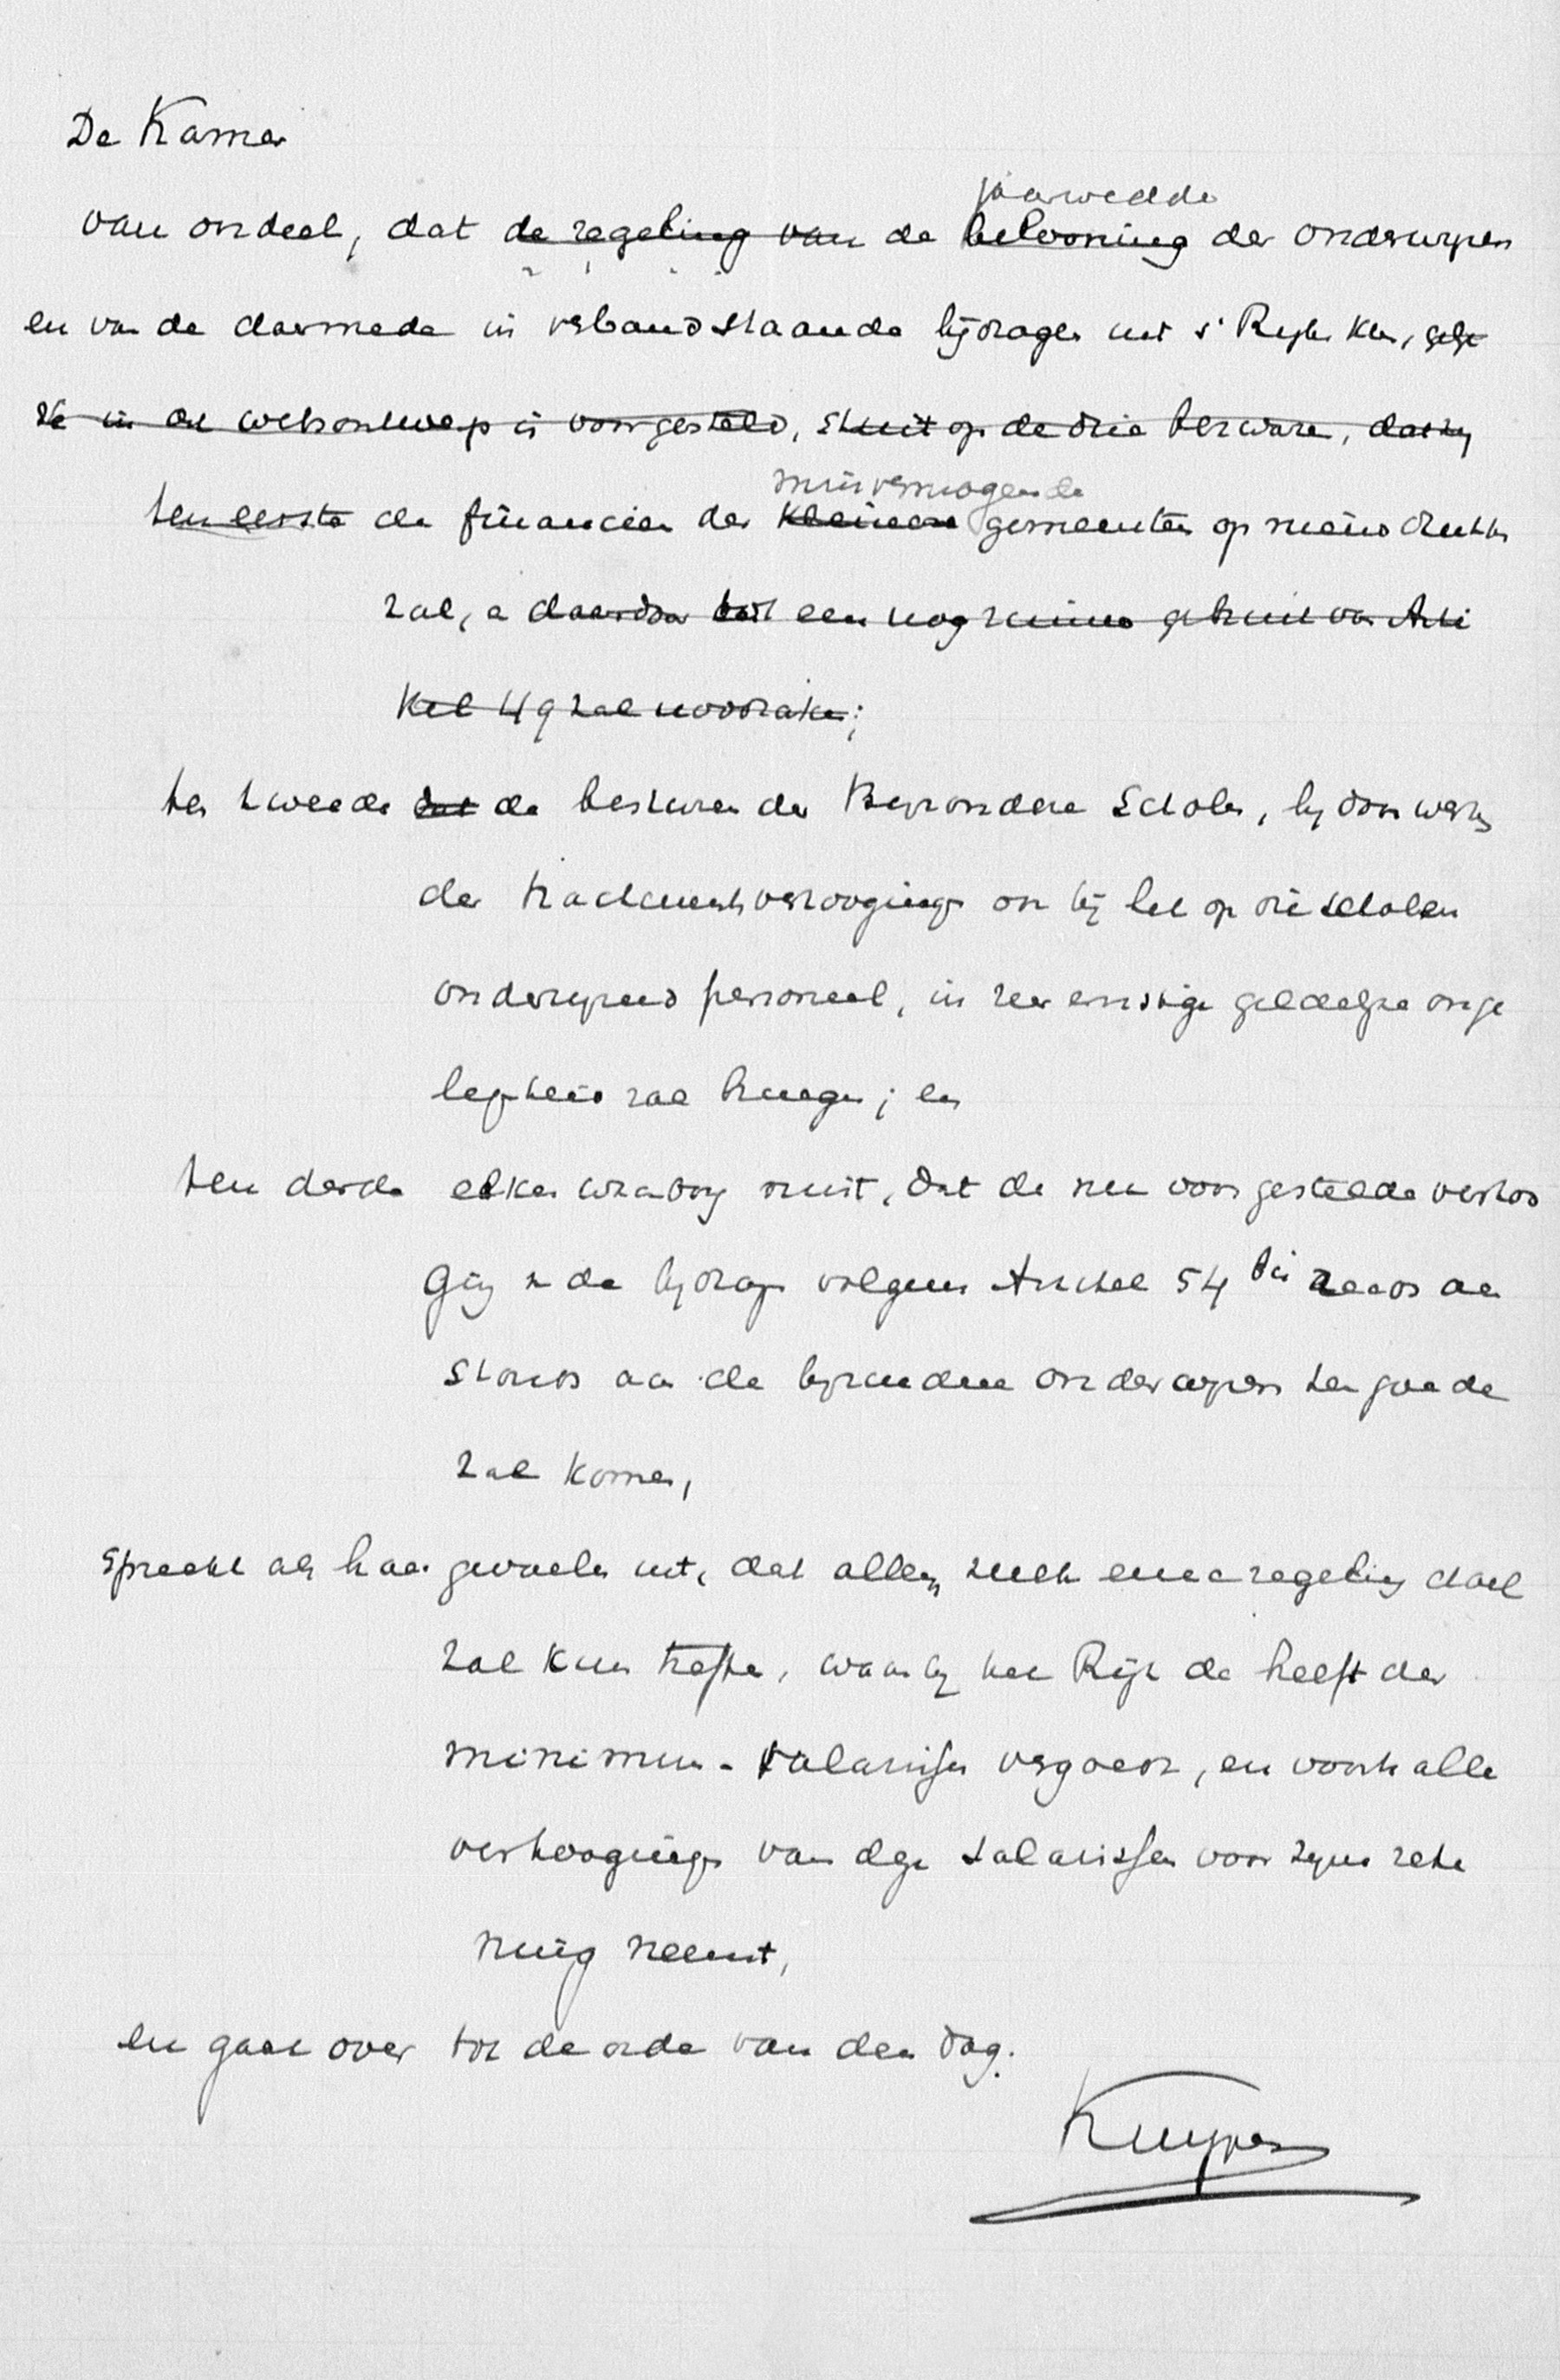 De Kamer
jaarwedde
van oordeel, dat de regeling van de belooning der onderwijzers
en van de daarmede in verband staande bijdragen uit 's Rijks kas, gelijk
ze in dit wetsontwerp is voorgesteld, stuit op de drie bezwaren, dat zij
minvermogende
ten eerste de financien der kleinere gemeenten op nieuw drukken
zal, en daardoor tot een nog ruimer gebruik van Arti
kel 49 zal noodzaken;
ten tweede dat de besturen der Bijzondere Scholen, bij doorwerking
der tractementsverhooging ook bij het op die scholen
onderwijzend personeel, in zeer ernstige geldelijke onge
legenheid zal brengen; en
ten derde elken waarborg mist, dat de nu voorgestelde verhoo
ging der bijdrage volgens Artikel 54 bis zaads aan
stonds aan de bijzondere onderwijzers ten goede
zal komen,
spreekt als haar gevoelen uit, dat alleen zulk eene regeling doel
zal kunnen treffen, waarbij het Rijk de helft der
minimum-salarissen vergoedt, en voorts alle
verhooging van deze salarissen voor zijne reke
ning neemt,
en gaat over tot de orde van den dag.
Kuyper